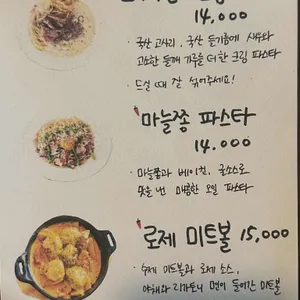 14,000
· 국산 고사리, 국산 들기름에 새우와
고소한 들깨 가루를 더한 크림 파스타
· 드실 때 잘 섞어주세요!
마늘쫑 파스타
14,000
· 마늘쫑과 베이컨, 굴소스로
맛을 낸 매콤한 오일 파스타
로제 미트볼 15,000
· 수제 미트볼과 로제 소스,
야채와 리가토니 면이 들어간 미트볼